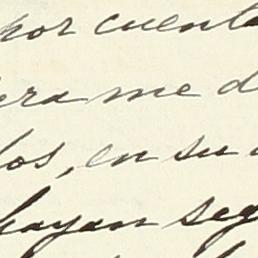 por cuenta
era me d
los, en su
hayan seg